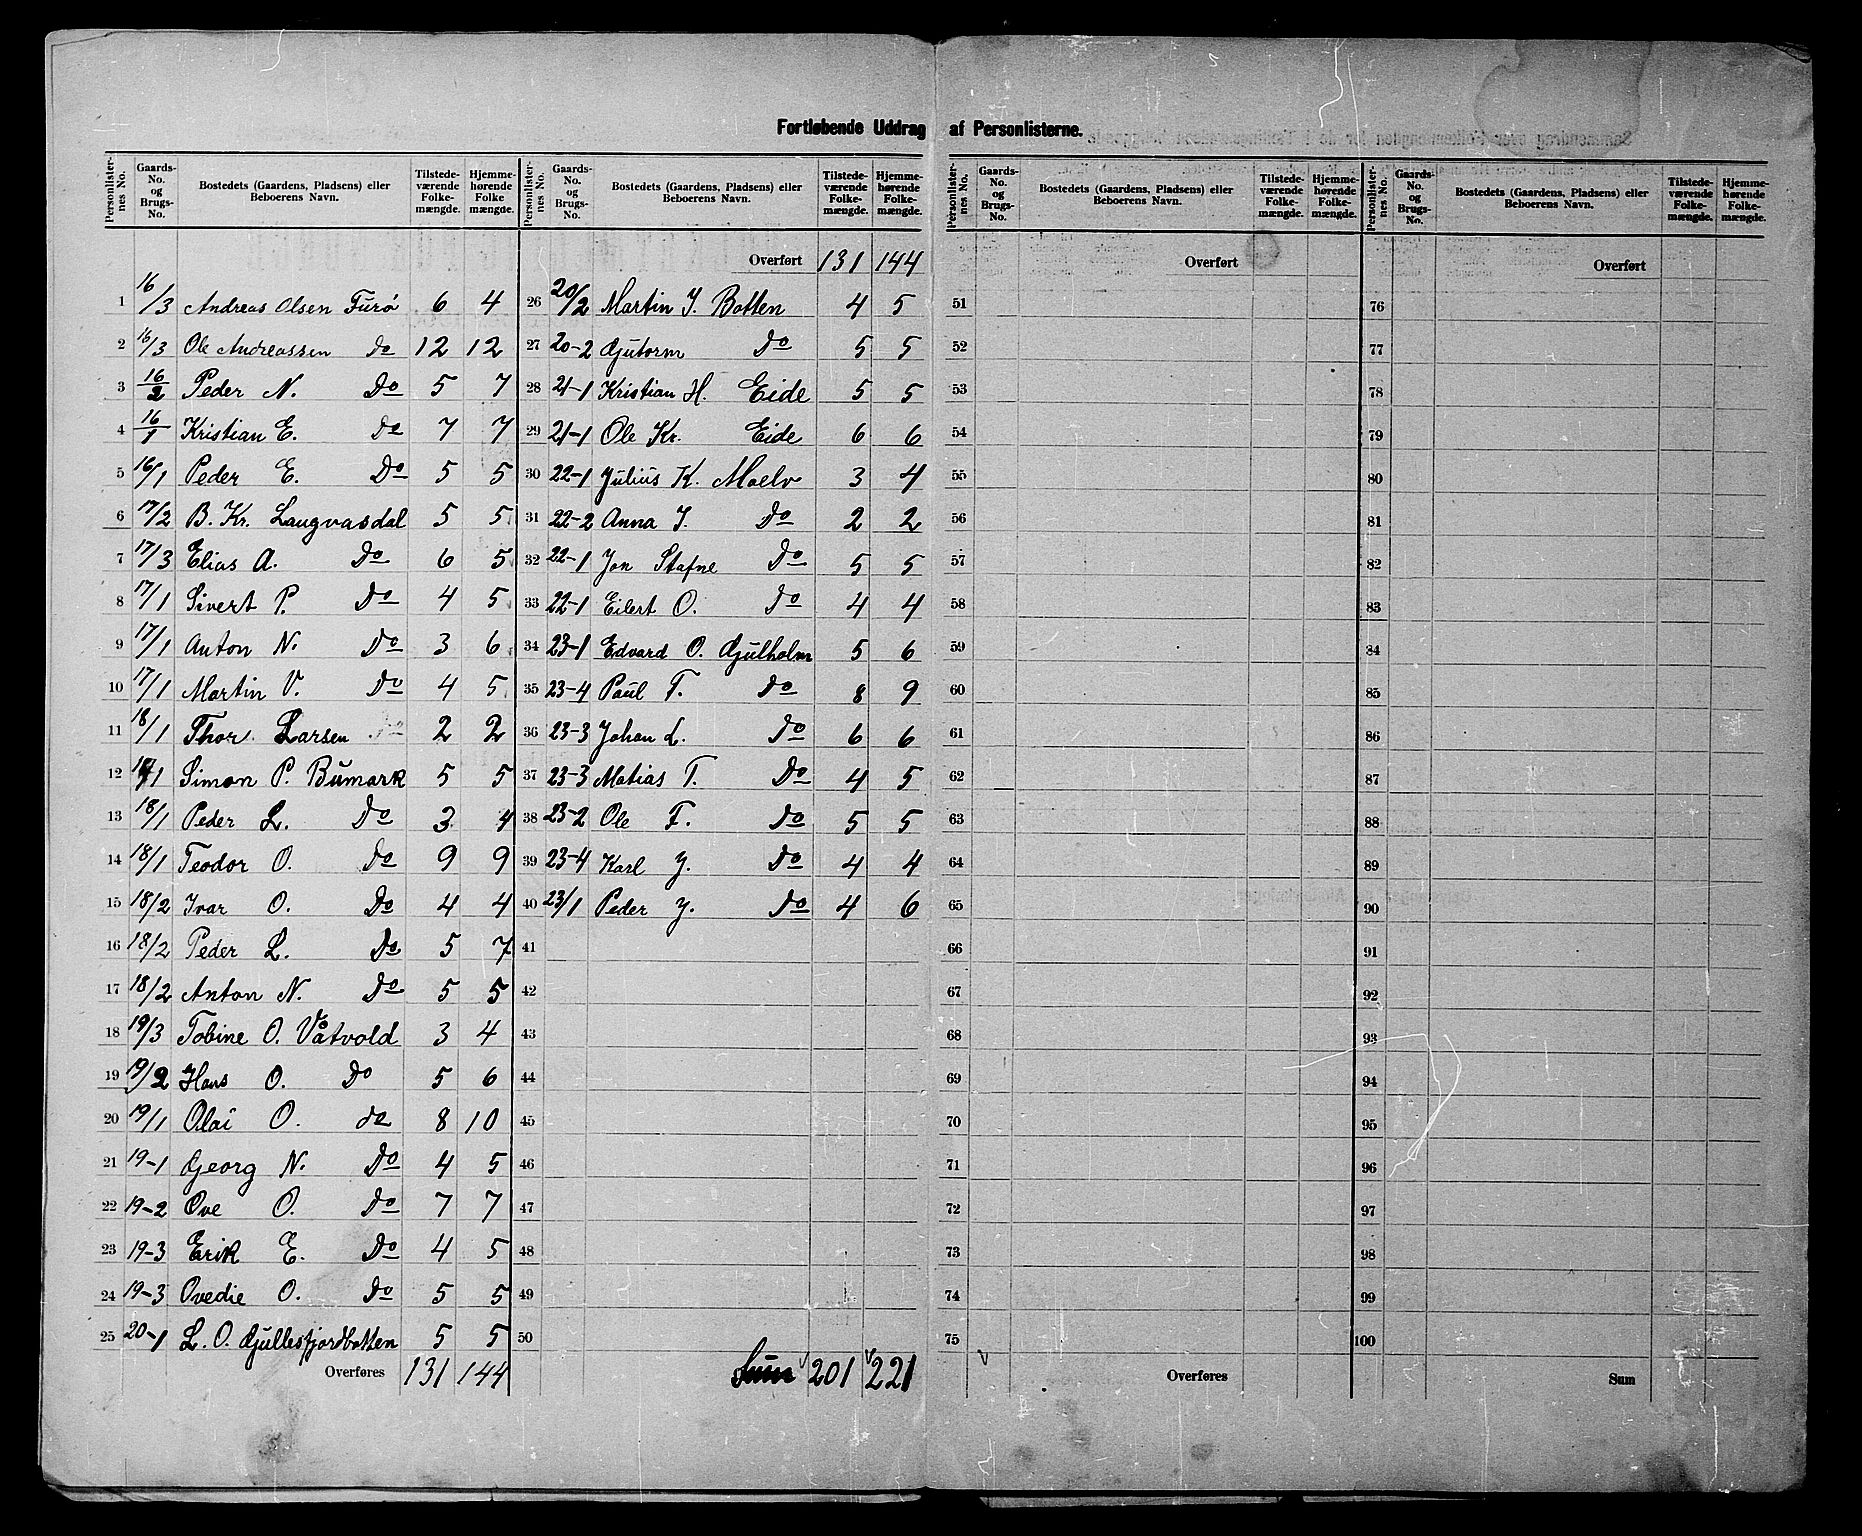 Fortløbende Uddrag af Personlisterne.
Personlister-nes No. | Gaards-No. og Brugs-No. | Bostedets (Gaardens, Pladsens) eller Beboerens Navn. | Tilstede-værende Folke-mængde. | Hjemme-hørende Folke mængde.
1 16/3 Andreas Olsen Furö 6 4
2 16/3 Ole Andreassen do 12 12
3 16/2 Peder N. Do 5 7
4 16/1 Kristian E. Do 7 7
5 16/1 Peder E. Do 5 5
6 17/2 B. Kr. Langvasdal 5 5
7 17/3 Elias A. Do 6 5
8 17/1 Sivert P. Do 4 5
9 17/1 Anton N. Do 3 6
10 17/1 Martin V. Do 4 5
11 18/1 Thor Larsen 2 2
12 Simon P. Bumark 5 5
13 18/1 Peder L. Do 3 4
14 18/1 Teodor O. Do 9 9
15 18/2 Ivar O. Do 4 4
16 18/2 Peder L. Do 5 7
17 18/2 Anton N. Do 5 5
18 19/3 Tobine O. Våtvold 3 4
19 19/2 Hans O. Do 5 6
20 19/1 Olai O. do 8 10
21 19-1 Georg N. Do 4 5
22 19-2 Ove O. Do 7 7
23 19-3 Erik E. Do 4 5
24 19-3 Ovedie O. Do 5 5
25 20-1 L. O. Gjullesfjordbotten 5 5
Overføres 131 144
Personlister-nes No. | Gaards-No. og Brugs-No. | Bostedets (Gaardens, Pladsens) eller Beboerens Navn. | Tilstede-værende Folke-mængde. | Hjemme-hørende Folke-mængde.
Overført 131 144
26 20/2 Martin J. Botten 4 5
27 20-2 Gjutorm Do 5 5
28 21-1 Kristian H. Eide 5 5
29 21-1 Ole Kr. Eide 6 6
30 22-1 Julius K. Moelv 3 4
31 22-2 Anna J. Do 2 2
32 22-1 Jon Stafne Do 5 5
33 22-1 Eilert O. Do 4 4
34 23-1 Edvard O. Gjulholm 5 6
35 23-4 Paul F. Do 8 9
36 23-3 Johan L. Do 6 6
37 23-3 Matias T. Do 4 5
38 23-2 Ole F. Do 5 5
39 23-4 Karl J. Do 4 4
40 23/1 Peder J. Do 4 6
41
42
43
44
45
46
47
48
49
50
Sum 201 221
Personlister-nes No. | Gaards-No. og Brugs-No. | Bostedets (Gaardens, Pladsens) eller Beboerens Navn. | Tilstede-værende Folke-mængde. | Hjemme-hørende Folke-mængde.
Overført
51
52
53
54
55
56
57
58
59
60
61
62
63
64
65
66
67
68
69
70
71
72
73
74
75
Overføres
Personlister-nes No. | Gaards-No. og Brugs-No. | Bostedets (Gaardens, Pladsens) eller Beboerens Navn. | Tilstede-værende Folke-mængde. | Hjemme-hørende Folke-mængde.
Overført
76
77
78
79
80
81
82
83
84
85
86
87
88
89
90
91
92
93
94
95
96
97
98
99
100
Sum